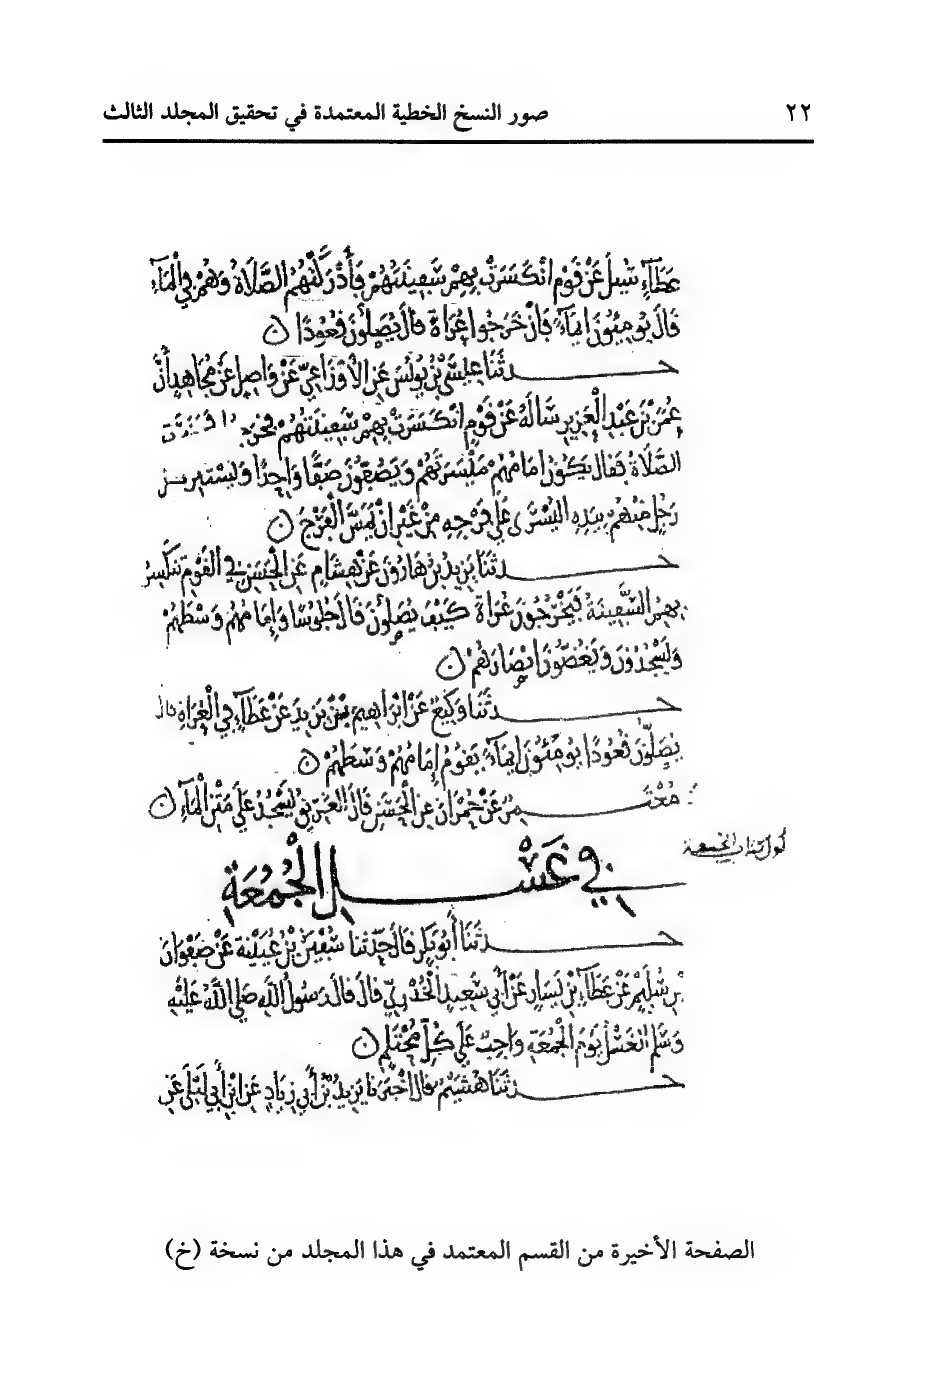 ٢٢ صور النسخ الخطية المعتمدة في تحقيق المجلد الثالث
عطاء سئل عن قوم انكسرت بهم سفينتهم فأدركتهم الصلاة وهم في الماء
قال يومئون ايماء فان خرجوا عراة قال يصلون قعودا
حدثنا عيسى بن يونس عن الأوزاعي عن واصل عن مجاهد أن
عمر بن عبد العزيز سأله عن قوم انكسرت بهم سفينتهم
الصلاة فقال يكون امامهم ميسرتهم ويصفون صفا واحدا وليستتر
رجل منهم بيده اليسرى على فرجه من غير ان يمس الفرج
حدثنا يزيد بن هارون عن هشام عن الحسن في القوم تنكسر
بهم السفينة فيخرجون عراة كيف يصلون قال جلوسا وامامهم وسطهم
ويسجدون ويغضون ابصارهم
حدثنا وكيع عن ابراهيم بن يزيد عن عطاء في العراة قال
يصلون قعودا يومئون ايماء يقوم امامهم وسطهم
معتمر عن حمران عن الحسن قال الغريق يسجد على متن الماء
اول كتاب الجمعة
في غسل الجمعة
حدثنا أبو بكر قال حدثنا سفين بن عيينة عن صفوان
بن سليم عن عطاء بن يسار عن أبي سعيد الخدري قال قال رسول الله صلى الله عليه
وسلم الغسل يوم الجمعة واجب على كل محتلم
حدثنا هشيم قال اخبرنا يزيد بن أبي زياد عن ابن أبي ليلى عن
الصفحة الأخيرة من القسم المعتمد في هذا المجلد من نسخة (خ)